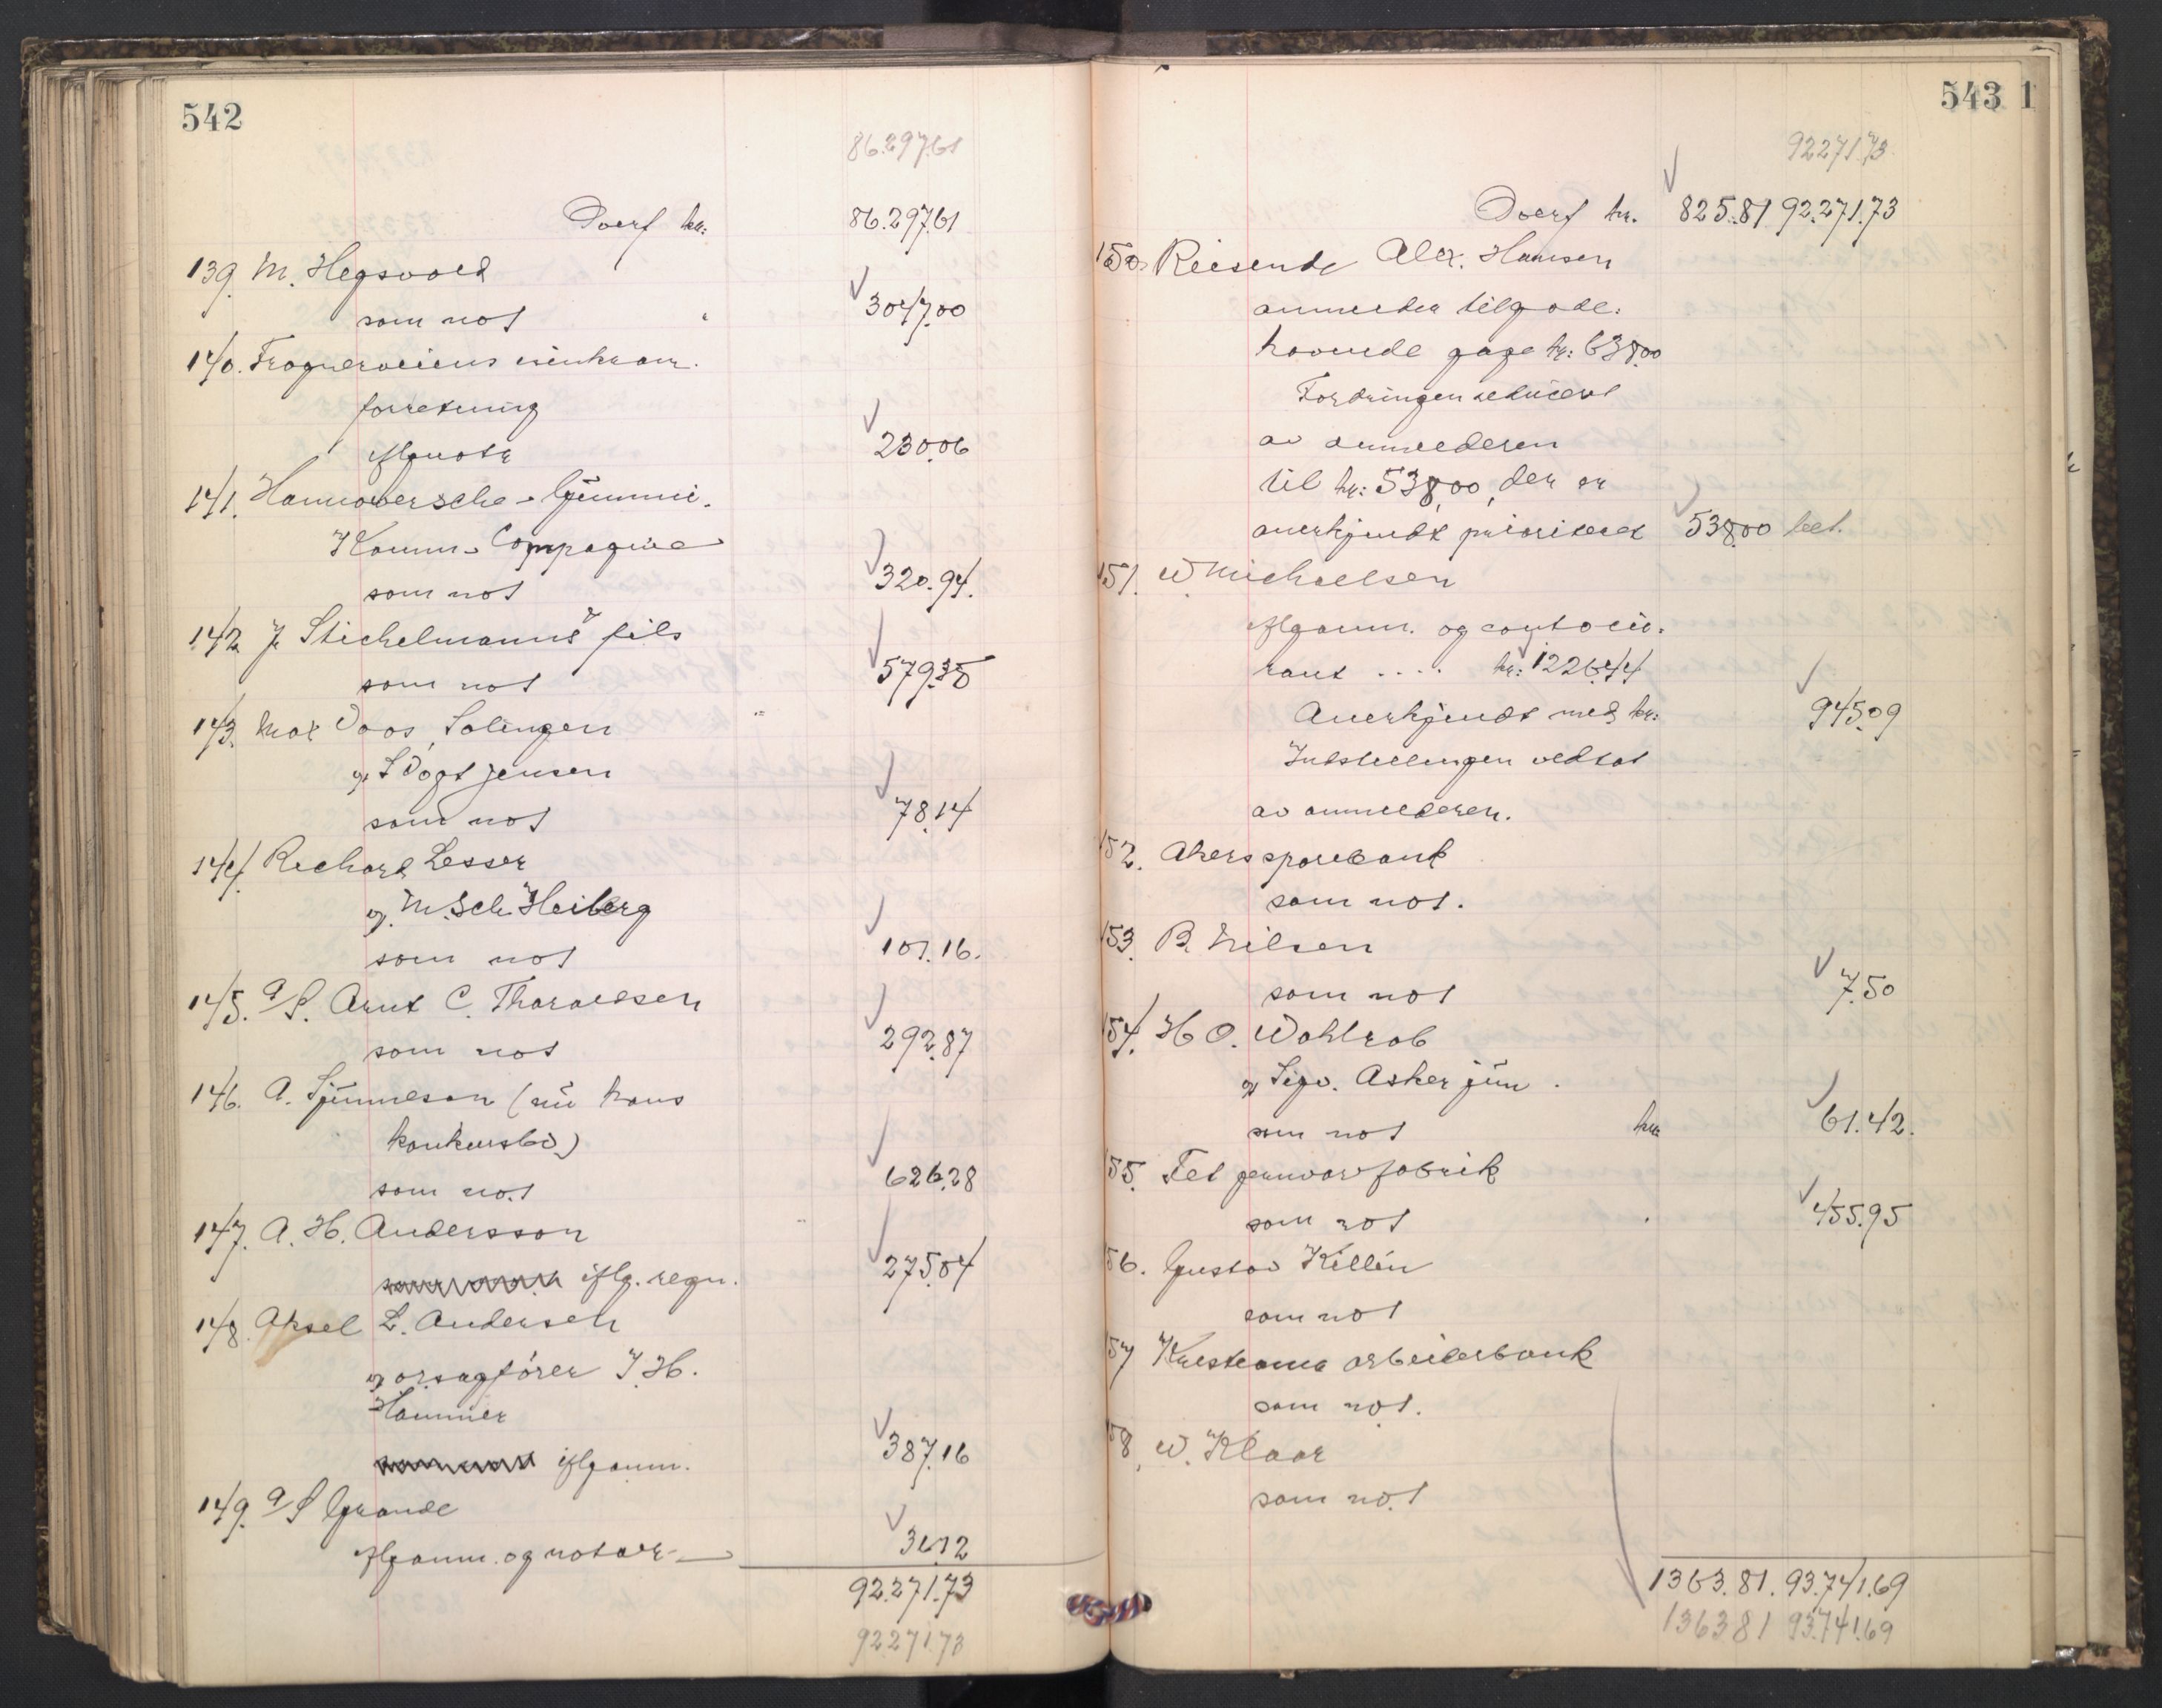 542
86.297.61
Overf kr: 86.297.61
139. M. Hegsvold
som not 3047.00
140. Frognerveiens isenkram.
forretning
iflg nota 230.06
141. Hannoversche Gummi.
Kamm Compagnie
som not 320.94.
142 J. Stichelmanns fils
som not 579.35
143. Max Voos, Solingen
v. L Vogt Jensen
som not 78.14
144. Richard Lesser
v. M. Sch. Heiberg
som not 101.16.
145. A/S. Arnt C. Thoraldsen
som not 292.87
146. A. Gunneson (nu hans
konkursbo)
som not 626.28
147. A. H. Andersson
som not iflg. regn. 275.04
148. Aksel L. Andersen
v. orsagfører J. H.
Hammer
som not iflg anm. 387.16
149. A/S Grande
iflg anm. og notaer 36.12
92.271.73
92.271.73
543 1
92271.73
Overf kr. 825.81 92.271.73
150. Reisende Alex. Hansen
anmelder tilgode.
havende gage kr: 638.00
Fordringen reduceret
av anmelderen
til kr: 538,00, der er
anerkjendt prioriteret 538.00 bet.
151. W. Michaelsen
iflg anm. og contocu.
rant .... kr: 1226.44
Anerkjendt med kr: 945.09
Indstillingen vedtat
av anmelderen.
152. Akers sparebank
som not.
153. B. Nilsen
som not 7.50
154. H O. Wohlrab
v. Sigv. Asker jun.
som not kr. 61.42.
155. Fet jernvarefabrik
som not 455.95
156. Gustav Killén
som not
157 Kristiania arbeiderbank
som not.
158, W. Klaar
som not
1363.81. 93.741.69
1363 81 93.741.69